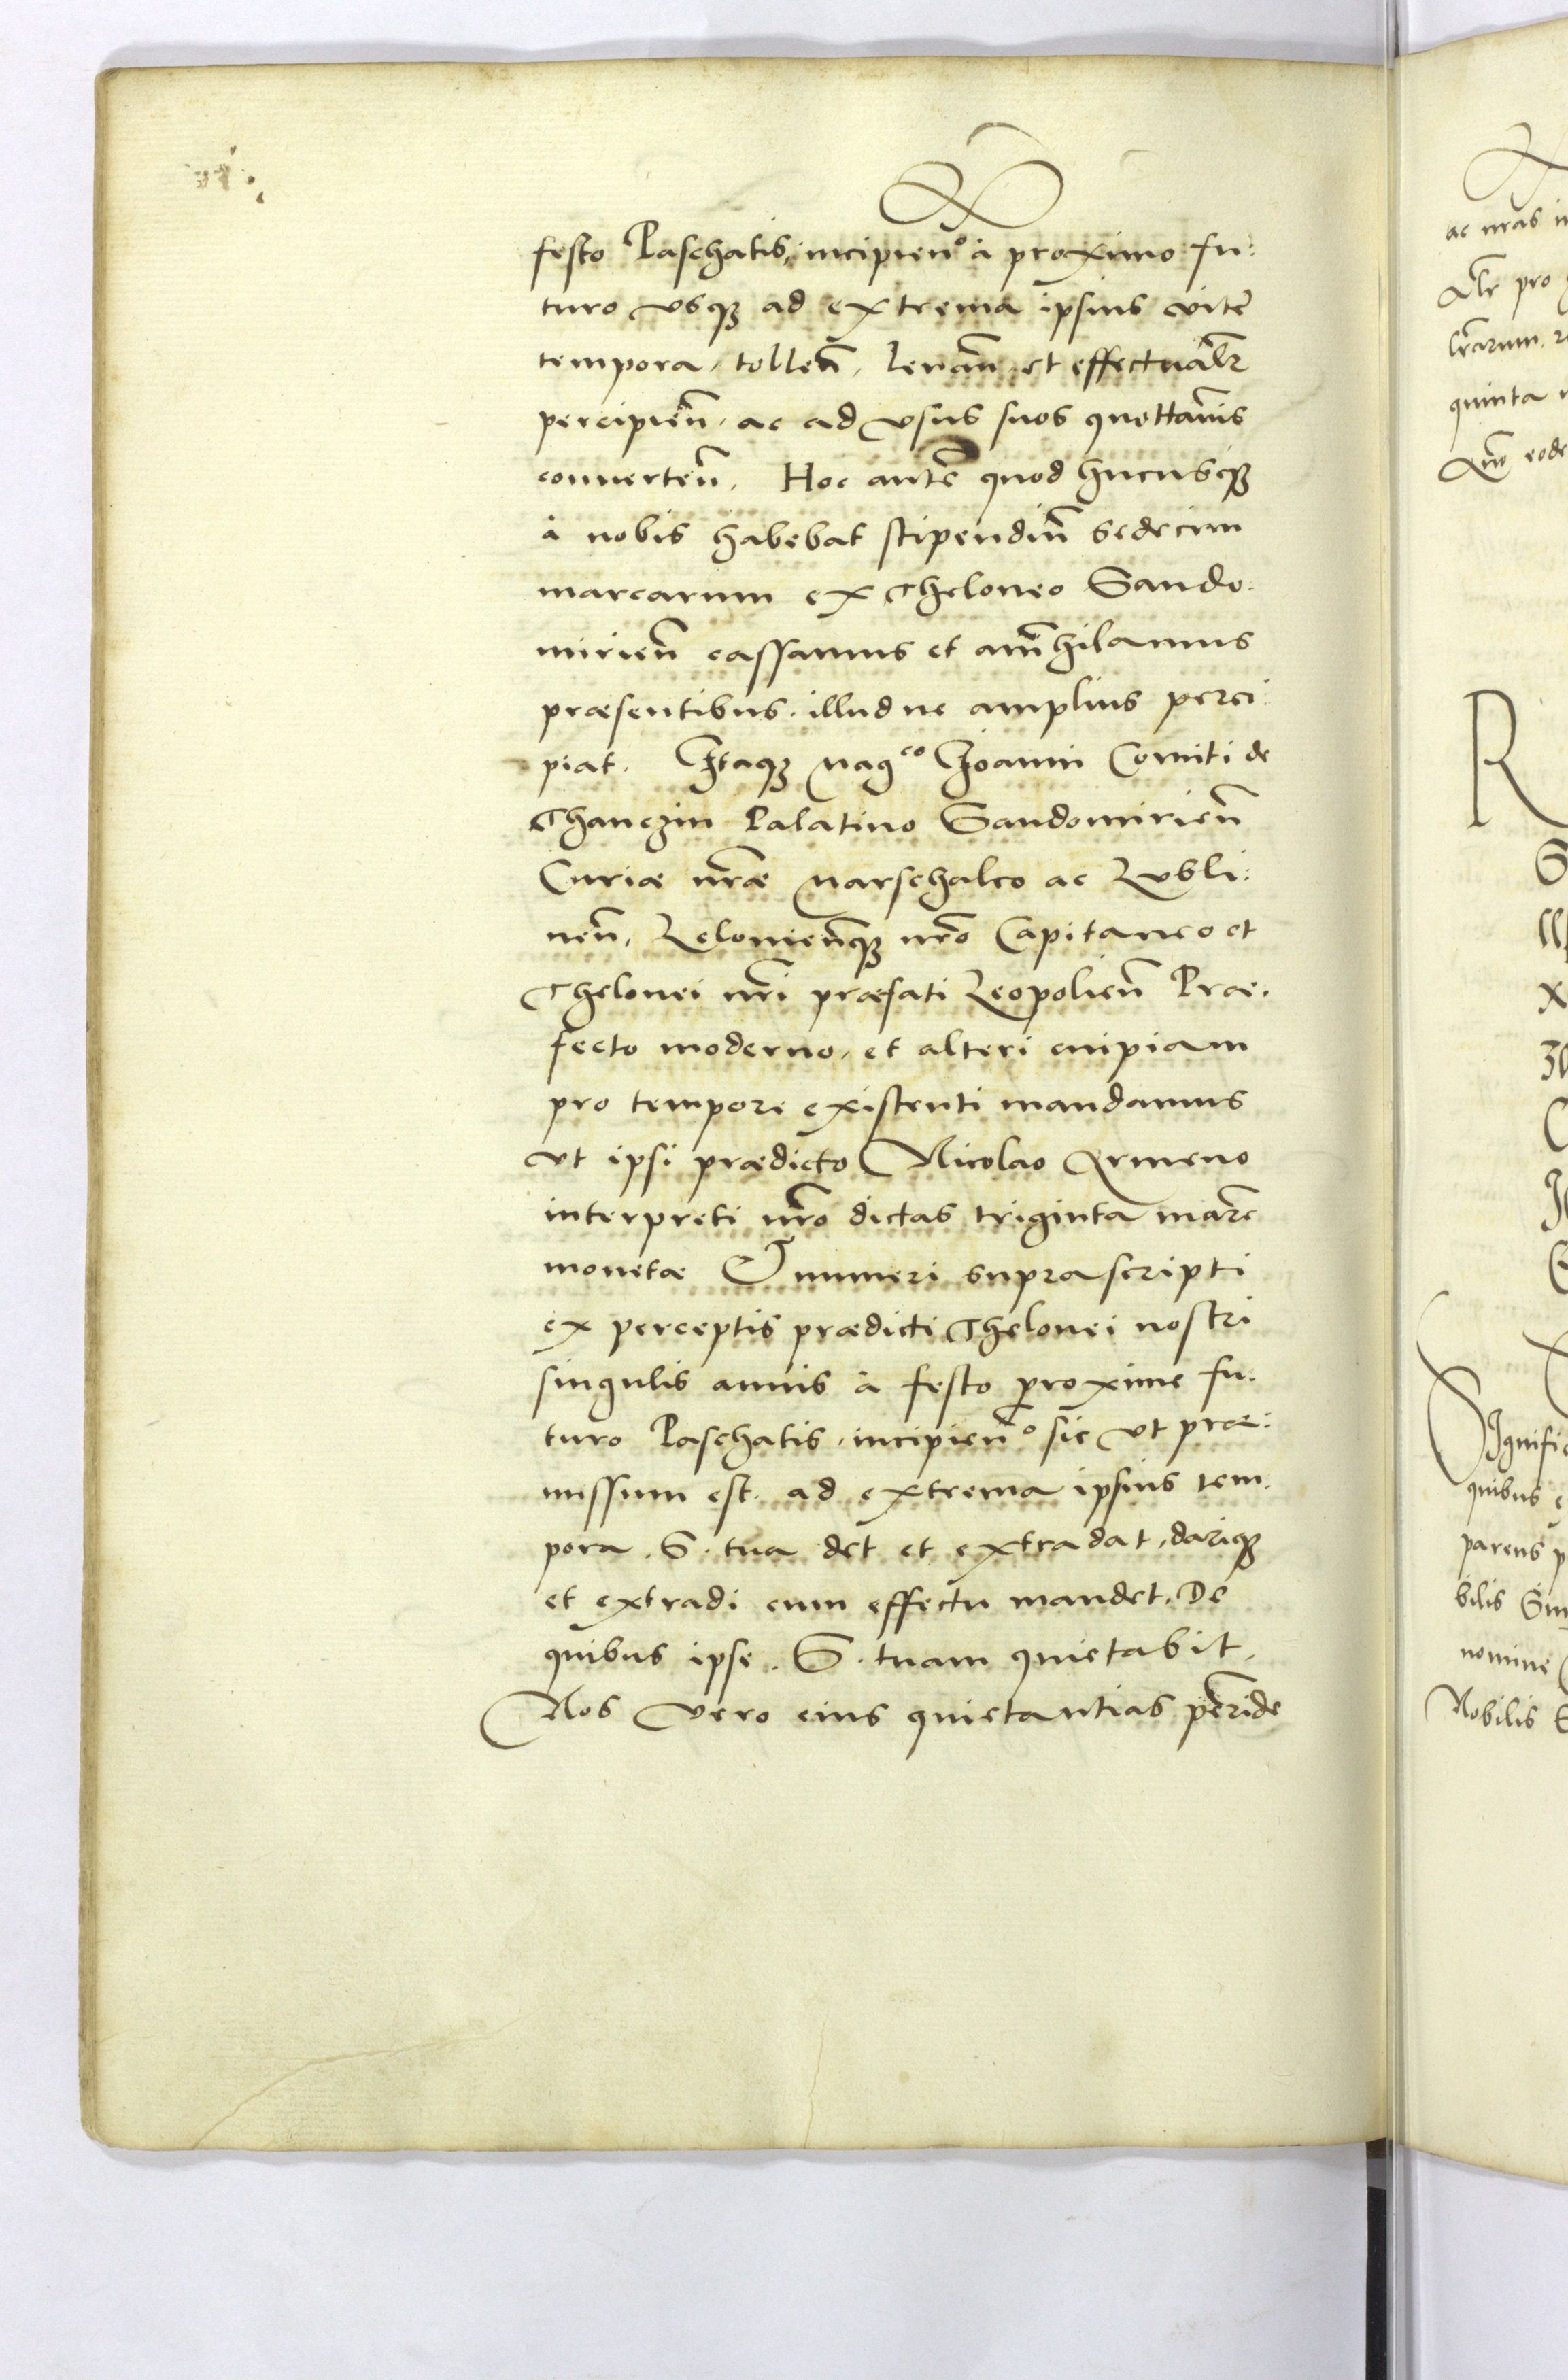 festo Paschatis, incipien̄° à proximo fu:
turo vsqȝ ad extrema ipsius vitę
tempora, tollen̄, leuan̄, et effectualr̄
percipien̄, ac ad vsus suos quottan̄is
conuerten̄. Hoc autē quod hucusqȝ
à nobis habebat stipendiū sedecim
marcarum ex Theloneo Sando:
mirien̄ cassamus et an̄ihilamus
præsentibus. illud ne amplius perci:
piat. Itaqȝ Mag^co Ioanni Comiti de
Thanczin Palatino Sandomirien̄
Curiæ nr̄æ Marschalco ac Lubli:
nen̄, Zelomien̄qȝ nr̄o Capitaneo et
Thelonei nr̄i præfati Leopolien̄ Præ:
fecto moderno, et alteri cuipiam
pro tempore existenti mandamus
vt ipsi prædicto Nicolao Armeno
interpreti nr̄o dictas triginta marc̄
monetæ & numeri suprascripti
ex perceptis prædicti Thelonei nostri
singulis annis à festo proxime fu:
turo Paschatis, incipien̄° sic vt præ:
missum est. ad extrema ipsius tem:
pora. S. tua det et extradat, dariqȝ
et extradi cum effectu mandet. De
quibus ipse. S. tuam quietabit,
Nos vero eius quietantias perinde
ac nras
Alr̄ pro
lr̄arum
quinta
eode
R
Signific
quibus
parens
bilis
nomine
Nobilis